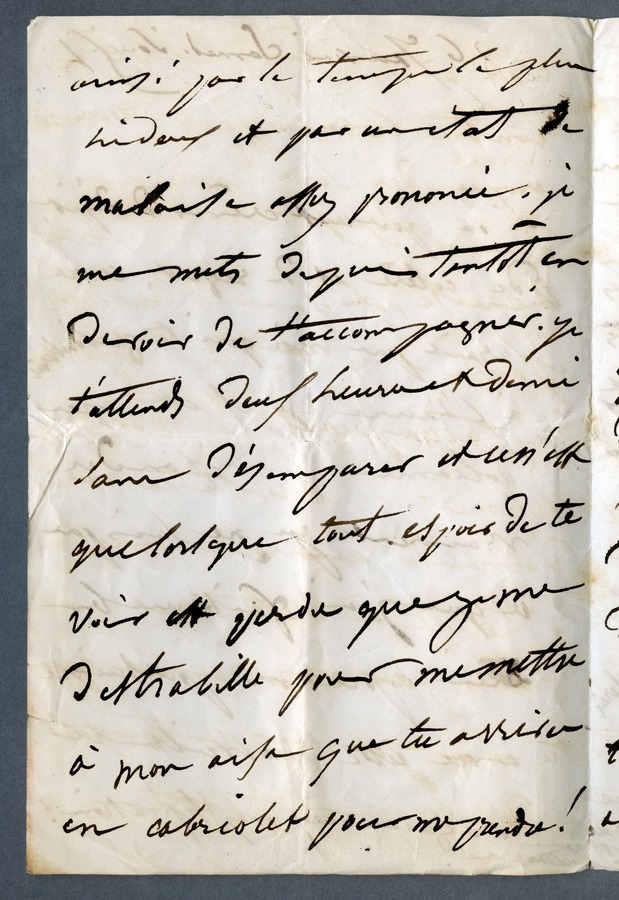 ainsi par le temps le plus
hideux et par un etat de
malaise assez prononcé, je
me mets depuis tantôt en
devoir de t'accompagner. je
t'attends deux heures et demi
sans désemparer et ce n'est
que lorsque tout espoir de te
voir est perdu que je me
déshabille pour me mettre
à mon aise que tu arrives
en cabriolet pour me prendre!